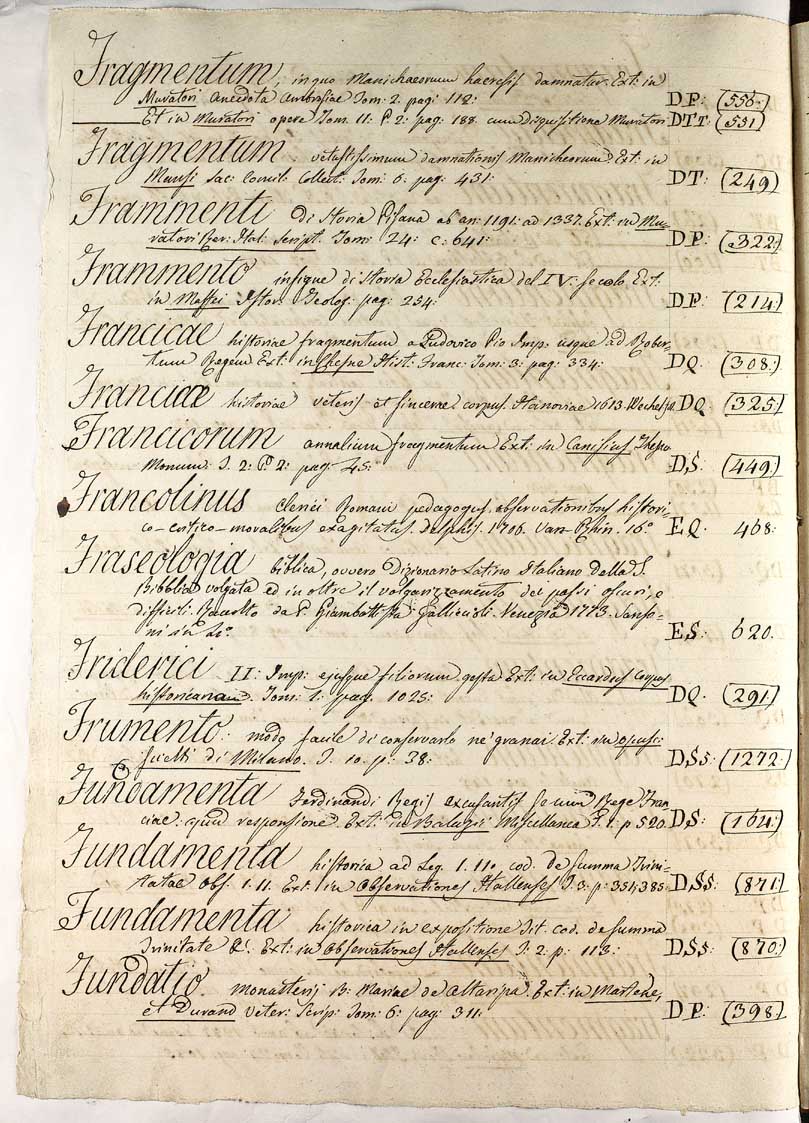 Fragmentum, in quo Manichaeorum haeresis damnatur. Ext: in
Muratori Anecdota Ambrosiae Tom: 2. pag: 112: DP: 556.
Et in Muratori opere Tom. 11: P. 2: pag: 188. cum Disquisitione Muratori DTT: 551
Fragmentum vetustissimum damnationis Manicheorum. Ext: in
Mansi Sac: Concil: Collect: Tom: 6. pag: 431: DT: 249
Frammenti di Storia Pisana ab an: 1191: ad 1337. Ext: in Mu-
ratori Rer: Ital: Script. Tom: 24: c: 641: DP: 322:
Frammento insigne di Storia Ecclesiastica del IV: secolo Ext:
in Maffei Istor: Teolog: pag: 254: DP: 214:
Francicae historiae fragmentum a Ludovico Pio Imp: usque ad Rober-
tum Regem Ext: in Chesne Hist: Franc: Tom: 3: pag: 334: DQ. 308:
Franciae historiae veteris et sincerae corpus Hanoviae 1613. Wechel DQ: 325
Francicorum annalium fragmentum Ext: in Canisius Thesau
Monum: T. 2: P. 2: pag: 45: DS: 449:
Francolinus Clerici Romani pedagogus observationibus histori-
co-critico-moralibus exagitatus. Delphis. 1706. Van-Rhin. 16° EQ. 468:
Fraseologia biblica, ovvero Dizionario Latino Italiano della S.
Bibblia volgata ed in oltre il volgarizzamento dei passi oscuri, e
difficili. Raccolto da P. Giambattista Galliccioli. Venezia 1773. Sanso-
ni in 4:° ES: 620.
Friderici II: Imp: ejusque filiorum gesta Ext: in Eccardus Corpus
historicorum. Tom: 1: pag. 1025: DQ. 291.
Frumento: modo facile di conservarlo ne' granai. Ext: in opusc:
scielti di Milano. T. 10. p: 38: DSs: 1272:
Fundamenta Ferdinandi Regis excusantis se cum Rege Fran
ciae: cum responsione. Ext: in Baluzii Miscellanea T. 1: p 520. DS: 164:
Fundamenta historica ad Leg. 1. 11. cod. de summa Trini-
tatae Obs. 1. 11. Ext. in Observationes Hallenses T. 3: p: 354, 385. DSs: 871.
Fundamenta historica in expositione Tit. cod. de summa
Trinitate &: Ext: in Observationes Hallenses T: 2. p: 113: DSs: 870.
Fundatio monasterii B: Mariae de Altaripa. Ext: in Martene,
et Durand veter: Scrip: Tom: 6: pag: 311: DP: 398: